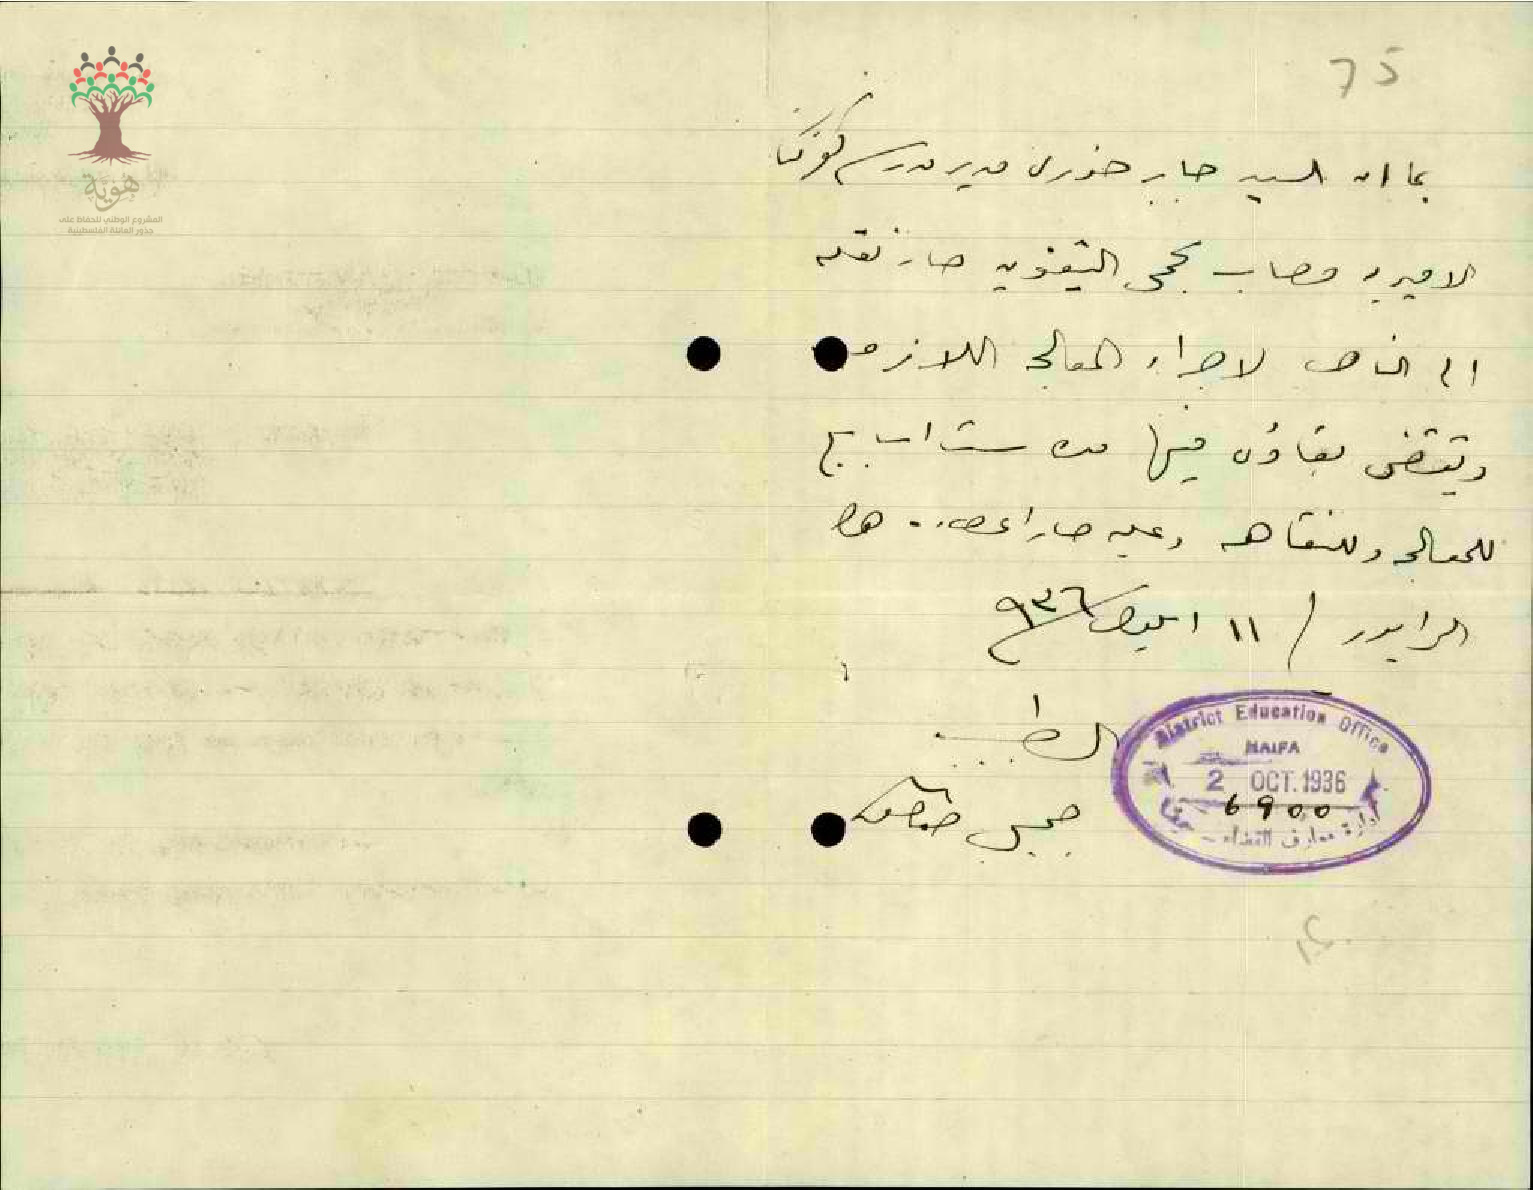 75
بما ان السيد جابر خوري مدير مدرسة كفركنا
الاميرية مصاب بحمى التيفوئيد صار نقله
الى الناصرة لاجراء المعالجة اللازمة
وتقتضي بقاؤه فيها مدة ست اسابيع
للمعالجة وللنقاهة وعليه صار اعطاءه هذا
الرابور / ١١ ايلول ٩٣٦
الطبيب
District Education Office
HAIFA
2 OCT. 1936
6900
ادارة معارف القضاء - حيفا
هوية
المشروع الوطني للحفاظ على
جذور العائلة الفلسطينية